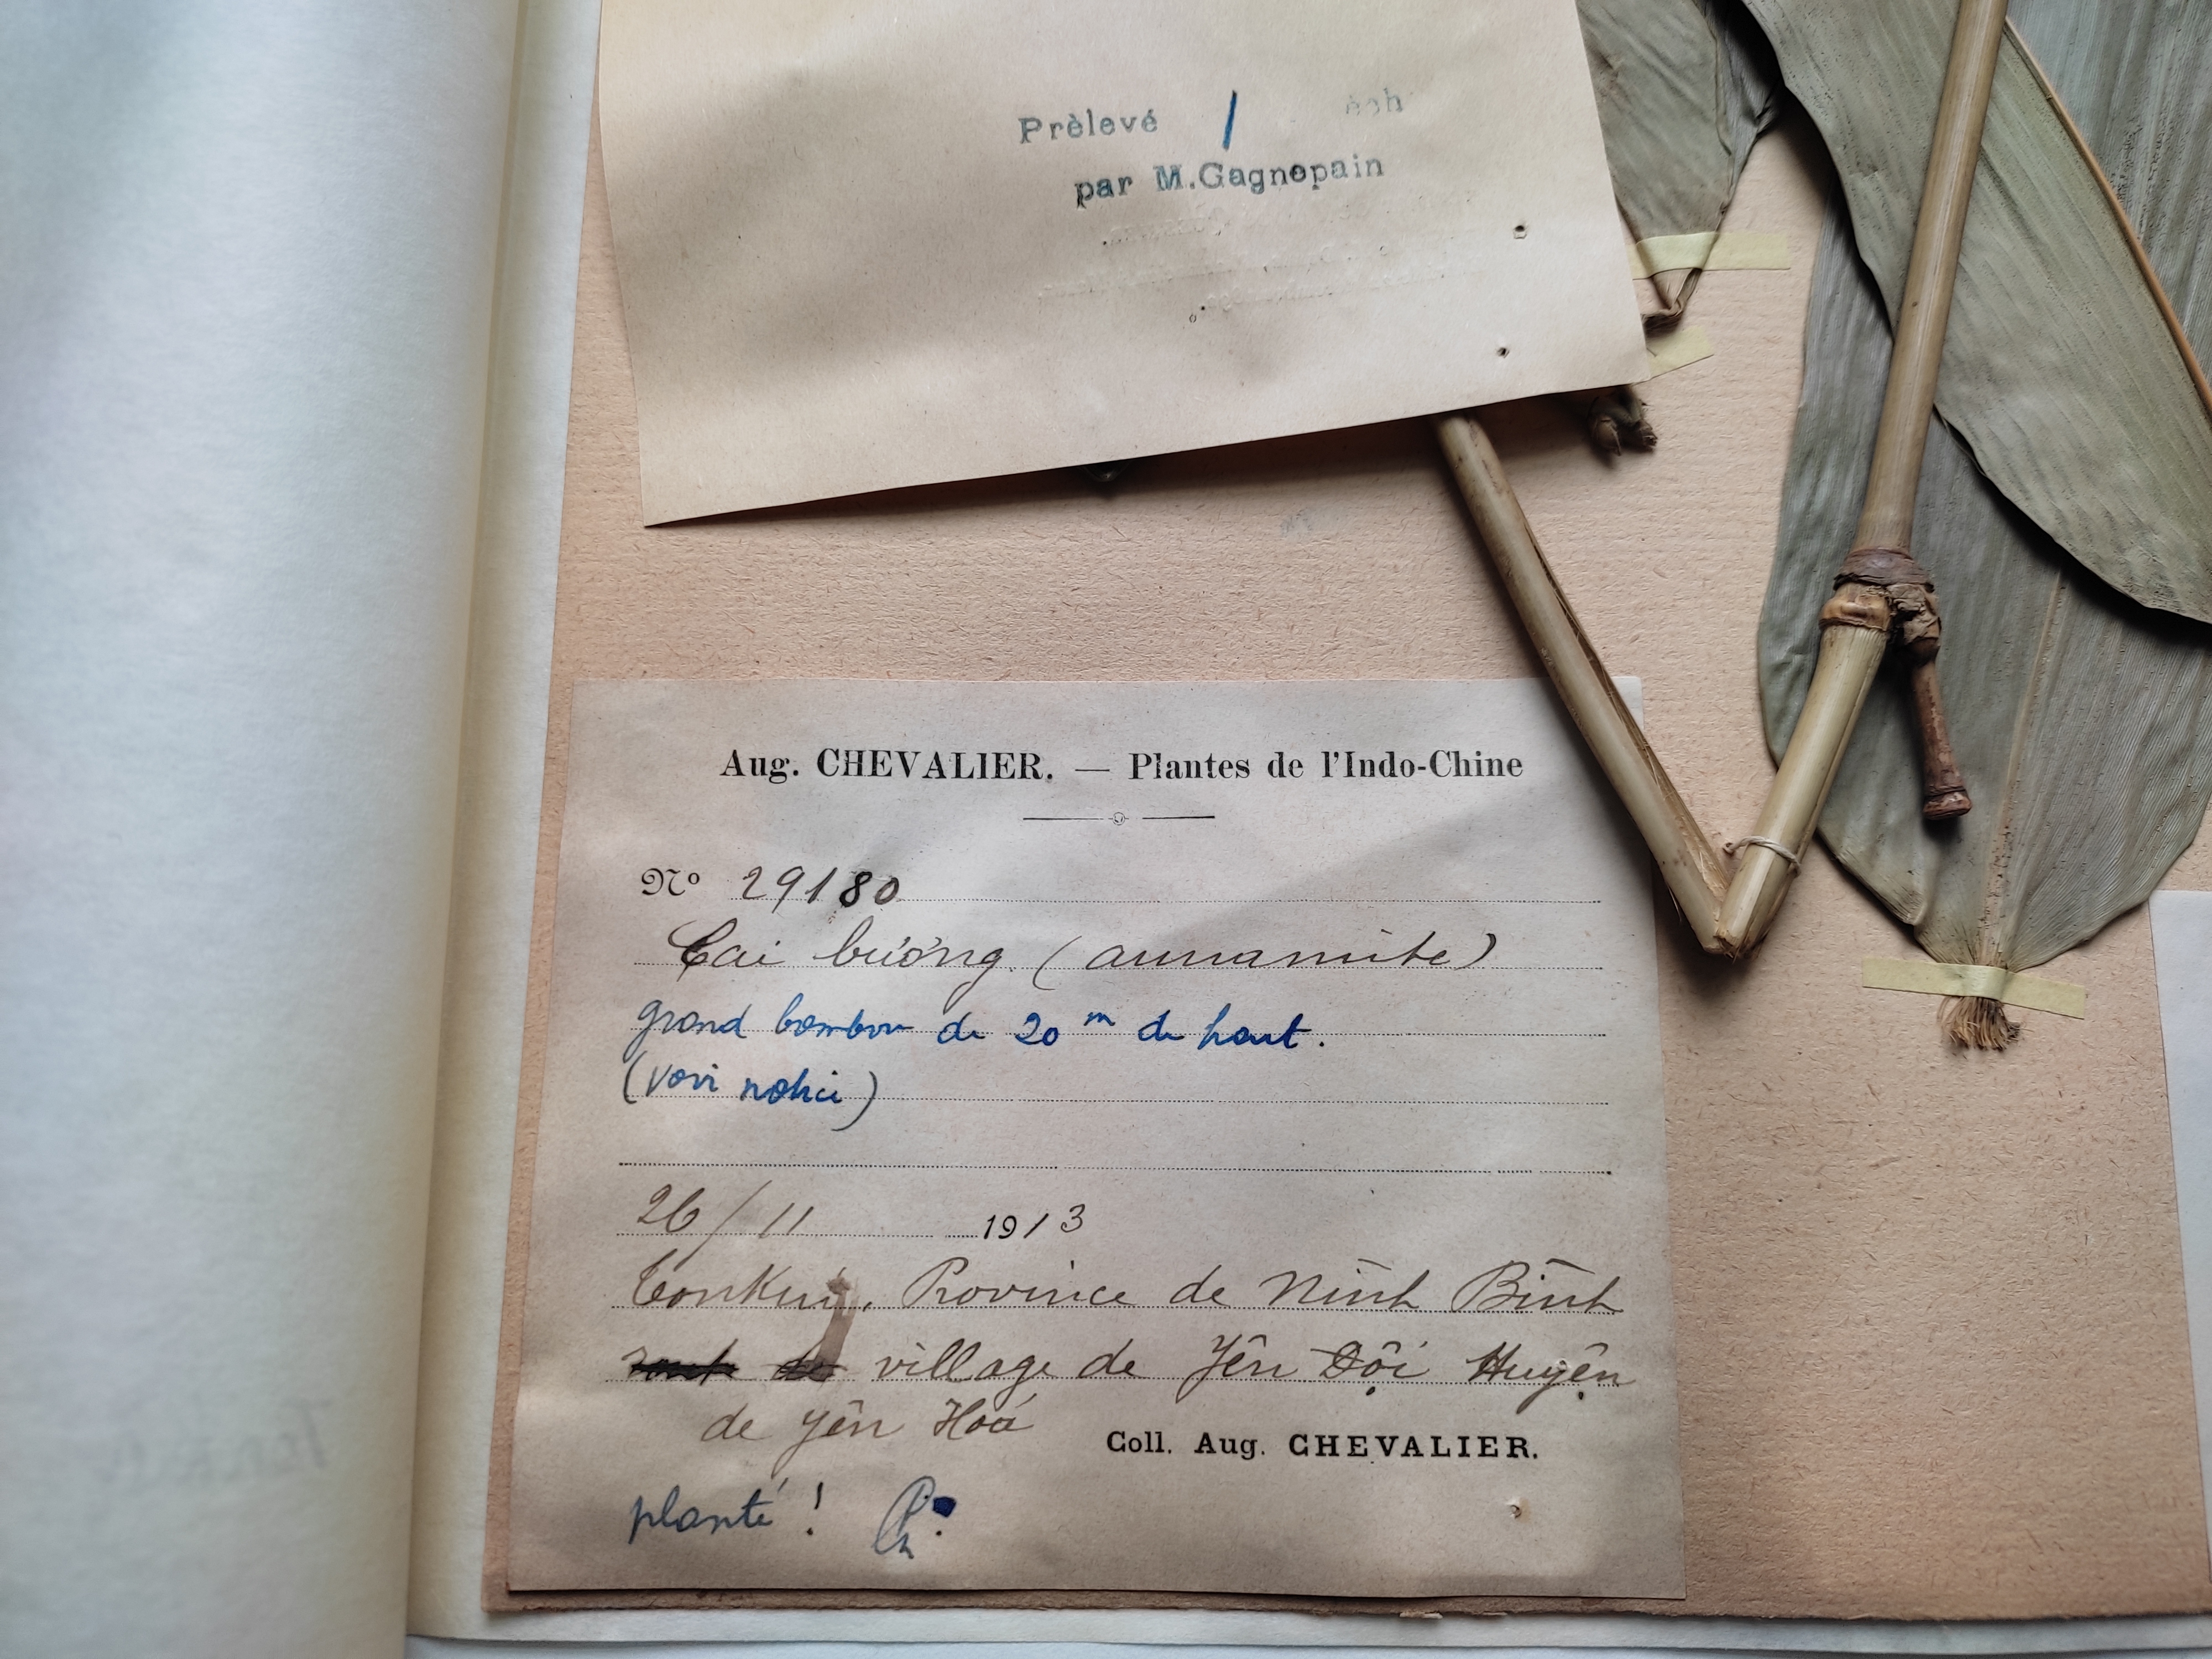 Prèlevé / éch
par M.Gagnepain
Aug. CHEVALIER. — Plantes de l'Indo-Chine
Nº 29180
Cai bường (annamite)
grand bambou de 20 m de haut.
(voir notice)
26/11 1913
Tonkin, Province de Ninh Binh
village de Yên Đội Huyện
de Yên Hoá
Coll. Aug. CHEVALIER.
planté !